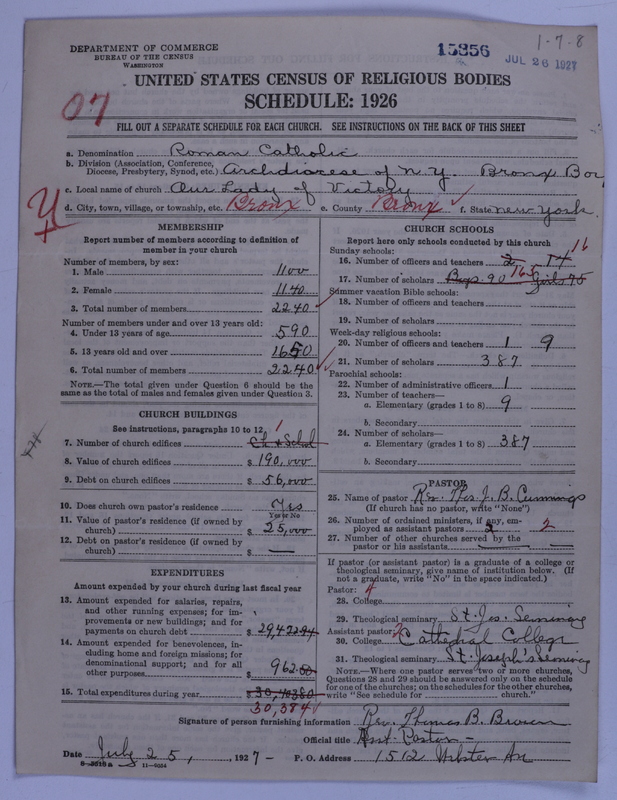 DEPARTMENT OF COMMERCE
BUREAU OF THE CENSUS
WASHINGTON
15356
JUL 26 1927
1-7-8
UNITED STATES CENSUS OF RELIGIOUS BODIES
SCHEDULE: 1926
07
FILL OUT A SEPARATE SCHEDULE FOR EACH CHURCH. SEE INSTRUCTIONS ON THE BACK OF THIS SHEET
a. Denomination Roman Catholic
b. Division (Association, Conference, Diocese, Presbytery, Synod, etc.) Archdiocese of N.Y. Bronx Bor
c. Local name of church Our Lady of Victory
d. City, town, village, or township, etc. Bronx e. County Bronx f. State New York.
MEMBERSHIP
Report number of members according to definition of
member in your church
Number of members, by sex:
1. Male 1100
2. Female 1140
3. Total number of members 2240
Number of members under and over 13 years old:
4. Under 13 years of age 590
5. 13 years old and over 1650
6. Total number of members 2240
NOTE.—The total given under Question 6 should be the
same as the total of males and females given under Question 3.
CHURCH BUILDINGS
See instructions, paragraphs 10 to 12
7. Number of church edifices Ch & Schol 1
8. Value of church edifices $ 190,000
9. Debt on church edifices $ 56,000
10. Does church own pastor's residence Yes
Yes or No
11. Value of pastor's residence (if owned by
church) $ 25,000
12. Debt on pastor's residence (if owned by
church) $ —
EXPENDITURES
Amount expended by your church during last fiscal year
13. Amount expended for salaries, repairs,
and other running expenses; for im-
provements or new buildings; and for
payments on church debt $ 29,422
14. Amount expended for benevolences, in-
cluding home and foreign missions; for
denominational support; and for all
other purposes $ 962
15. Total expenditures during year $
30,384
CHURCH SCHOOLS
Report here only schools conducted by this church
Sunday schools:
16. Number of officers and teachers 2 14 16
17. Number of scholars Boys 90 165 Girls 75
Summer vacation Bible schools:
18. Number of officers and teachers
19. Number of scholars
Week-day religious schools:
20. Number of officers and teachers 1 9
21. Number of scholars 387
Parochial schools:
22. Number of administrative officers 1
23. Number of teachers—
a. Elementary (grades 1 to 8) 9
b. Secondary
24. Number of scholars—
a. Elementary (grades 1 to 8) 387
b. Secondary
PASTOR
25. Name of pastor Rev. Thos. J. B. Cummings
(If church has no pastor, write "None")
26. Number of ordained ministers, if any, em-
ployed as assistant pastors 2 2
27. Number of other churches served by the
pastor or his assistants —
If pastor (or assistant pastor) is a graduate of a college or
theological seminary, give name of institution below. (If
not a graduate, write "No" in the space indicated.)
Pastor:
28. College
29. Theological seminary St. Jos. Seminary
Assistant pastor:
30. College Cathedral College
31. Theological seminary St. Joseph's Seminary
NOTE.—Where one pastor serves two or more churches,
Questions 28 and 29 should be answered only on the schedule
for one of the churches; on the schedules for the other churches,
write "See schedule for church."
Signature of person furnishing information Rev. Thomas B. Brown
Official title Asst. Pastor -
Date July 25, 1927- P. O. Address 1512 Webster Av
8-3519a 11-9264